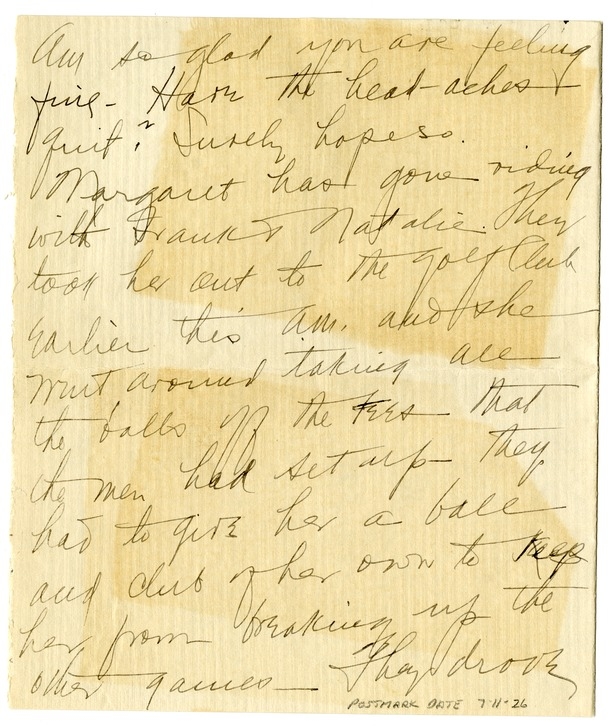 Am so glad you are feeling
fine - Have the head-aches
quit? Surely hope so.
Margaret has gone riding
with Frank & Natalie. They
took her out to the golf Club
Earlier this Am. and she
went around taking all
the balls off the tees that
the men had set up - they
had to give her a ball
and club of her own to keep
her from breaking up the
other games - They drove
POSTMARK DATE 7-11-26